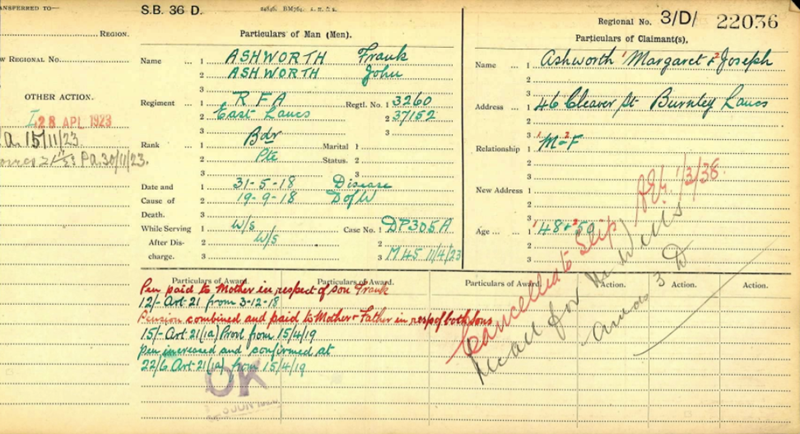 S.B. 36 D.
Regional No. 3/D/ 22036
Particulars of Man (Men).
Particulars of Claimant(s).
REGION.
REGIONAL NO.
OTHER ACTION.
28 APL 1923
15/11/23
P.a. 30/11/23.
Name ... 1 ASHWORTH Frank
2 ASHWORTH John
3
Regiment ... 1 R F A Regtl. No. 1 3260
2 East Lancs 2 37152
3 3
Rank ... 1 Bdr Marital 1
2 Pte Status. 2
3 3
Date and 1 31-5-18 Disease
Cause of 2 19-9-18 D of W
Death. 3
While Serving 1 W/S Case No. 1 DP305A
After Dis- 2 W/S 2
charge. 3 3 M45 11/4/23
Name ... 1 Ashworth 1 Margaret & 2 Joseph
2
3
Address ... 46 Cleaver St Burnley Lancs
Relationship 1 M 2 F
New Address
Age ... 1 1 48 & 2 50
2
3
Cancelled to Slip 1/3/38.
Recall for Wills
3 D
Particulars of Award. Particulars of Award. Action. Action. Action.
Pen paid to Mother in respect of son Frank
12/- Art 21 from 3-12-18
Pension combined and paid to Mother & Father in resp of both sons
15/- Art 21(1a) Provl from 15/4/19
Pen increased and confirmed at
22/6 Art 21(1a) from 15/4/19
OK